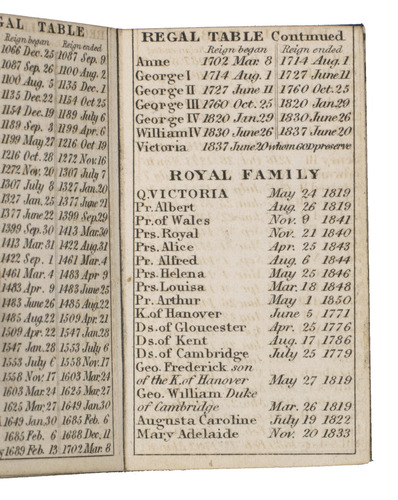 GAL TABLE
Reign began Reign ended
1066 Dec. 25 1087 Sep. 9
1087 Sep. 26 1100 Aug. 2
1100 Aug. 5 1135 Dec. 1
1135 Dec. 22 1154 Oct 25
1154 Dec. 19 1189 July 6
1189 Sep. 3 1199 Apr. 6
1199 May 27 1216 Oct 19
1216 Oct. 28 1272 Nov. 16
1272 Nov. 20 1307 July 7
1307 July 8 1327 Jan. 20
1327 Jan. 25 1377 June 21
1377 June 22 1399 Sep. 29
1399 Sep. 30 1413 Mar. 30
1413 Mar. 31 1422 Aug. 31
1422 Sep. 1 1461 Mar. 4
1461 Mar. 4 1483 Apr. 9
1483 Apr. 9 1483 June 25
1483 June 26 1485 Aug. 22
1485 Aug. 22 1509 Apr. 21
1509 Apr. 22 1547 Jan. 28
1547 Jan. 28 1553 July 6
1553 July 6 1558 Nov. 17
1558 Nov. 17 1603 Mar. 24
1603 Mar. 24 1625 Mar. 27
1625 Mar. 27 1649 Jan. 30
1649 Jan. 30 1685 Feb. 6
1685 Feb. 6 1688 Dec. 11
1689 Feb. 13 1702 Mar. 8
REGAL TABLE Continued
Reign began Reign ended
Anne 1702 Mar. 8 1714 Aug. 1
George I 1714 Aug. 1 1727 June 11
George II 1727 June 11 1760 Oct. 25
George III 1760 Oct. 25 1820 Jan. 29
George IV 1820 Jan. 29 1830 June 26
William IV 1830 June 26 1837 June 20
Victoria 1837 June 20 whom GOD preserve
ROYAL FAMILY
Q. VICTORIA May 24 1819
Pr. Albert Aug. 26 1819
Pr. of Wales Nov. 9 1841
Prs. Royal Nov. 21 1840
Prs. Alice Apr. 25 1843
Pr. Alfred Aug. 6 1844
Prs. Helena May 25 1846
Prs. Louisa Mar. 18 1848
Pr. Arthur May 1 1850
K. of Hanover June 5 1771
Ds. of Gloucester Apr. 25 1776
Ds. of Kent Aug. 17 1786
Ds. of Cambridge July 25 1779
Geo. Frederick son
of the K. of Hanover May 27 1819
Geo. William Duke
of Cambridge Mar. 26 1819
Augusta Caroline July 19 1822
Mary Adelaide Nov. 20 1833